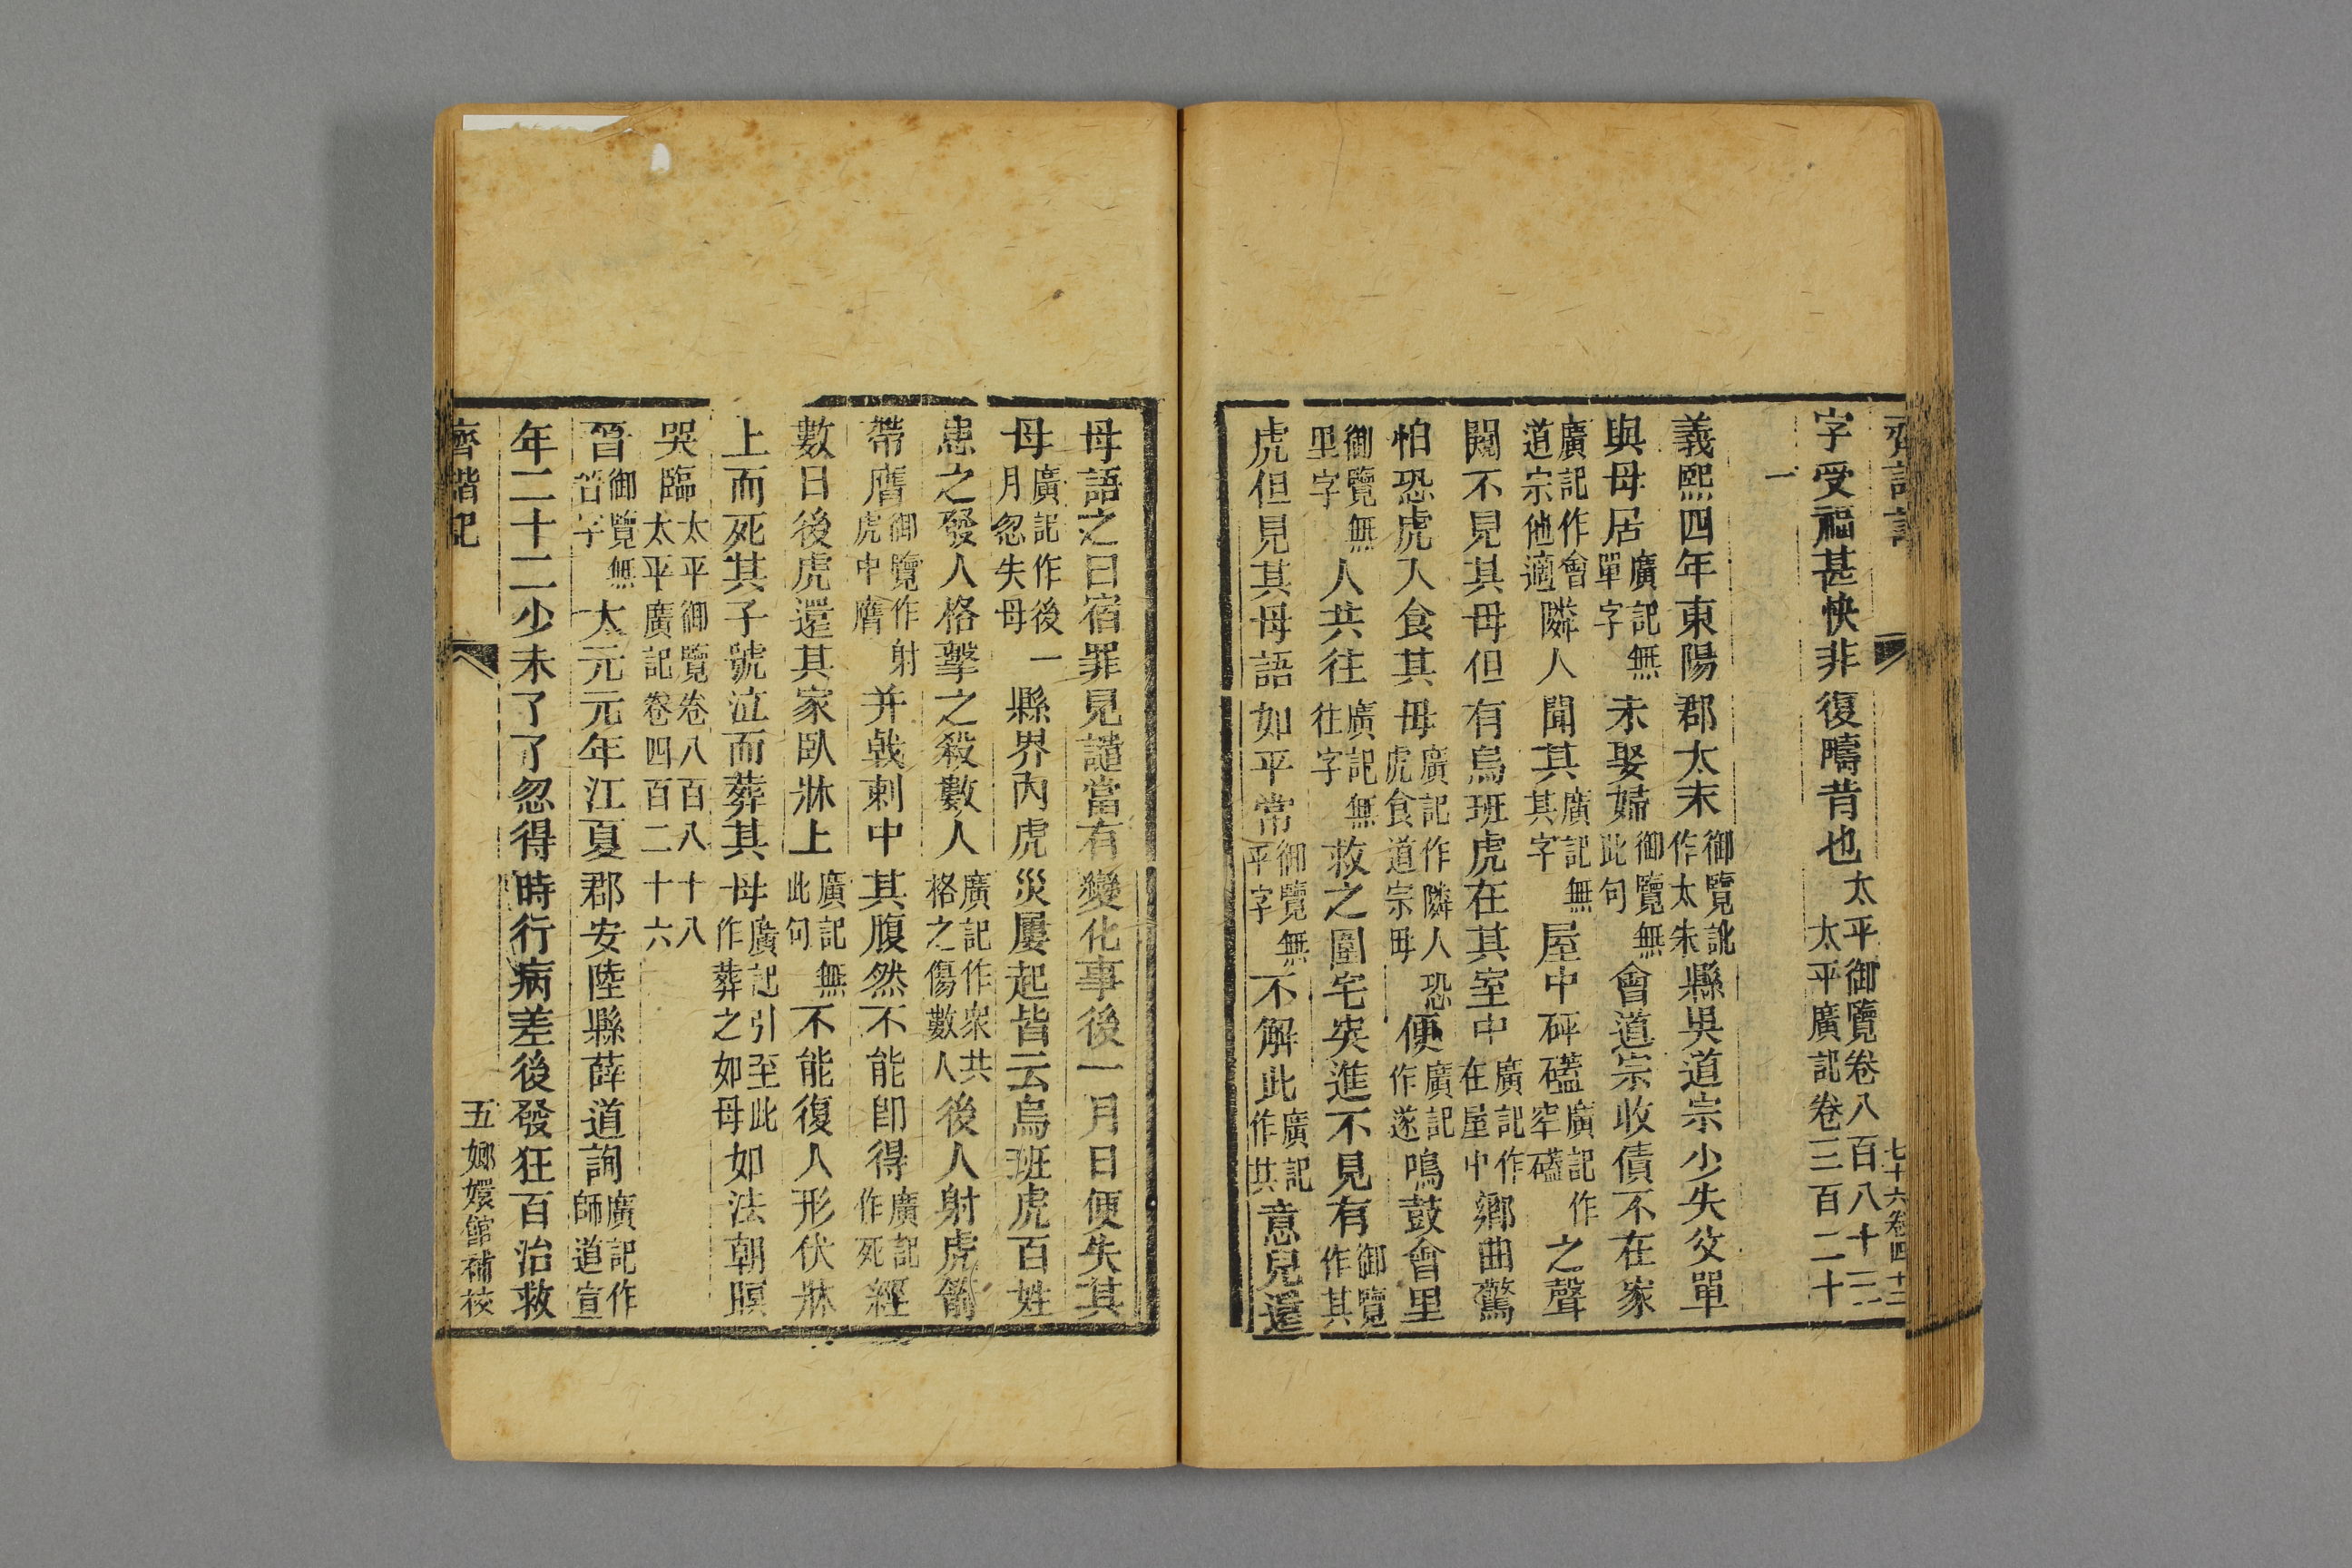 七十六卷四十二
字受福甚快非復疇昔也太平御覽卷八百八十二太平廣記卷三百二十
一
義熙四年東陽郡太末御覽訛作太朱縣吳道宗少失父單
與母居廣記無單字未娶婦御覽無此句會道宗收債不在家
廣記作會道宗他適隣人聞其廣記無其字屋中砰磕廣記作窣磕之聲
闚不見其母但有烏班虎在其室中廣記作在屋中鄉曲驚
怕恐虎入食其母廣記作隣人恐虎食道宗母便廣記作遂鳴鼓會里
御覽無里字人共往廣記無往字救之圍宅突進不見有御覽作其
虎但見其母語如平常御覽無平字不解此廣記作其意兒還
母語之曰宿罪見譴當有變化事後一月日便失其
母廣記作後一月忽失母縣界內虎災屢起皆云烏班虎百姓
患之發人格擊之殺數人廣記作眾共格之傷數人後人射虎箭
帶膺御覽作射虎中膺并戟刺中其腹然不能即得廣記作死經
數日後虎還其家臥牀上廣記無此句不能復人形伏牀
上而死其子號泣而葬其母廣記引至此作葬之如母如法朝暝
哭臨太平御覽卷八百八十八太平廣記卷四百二十六
晉御覽無晉字太元元年江夏郡安陸縣薛道詢廣記作師道宣
年二十二少未了了忽得時行病差後發狂百治救
齊諧記
五嫏嬛館補校